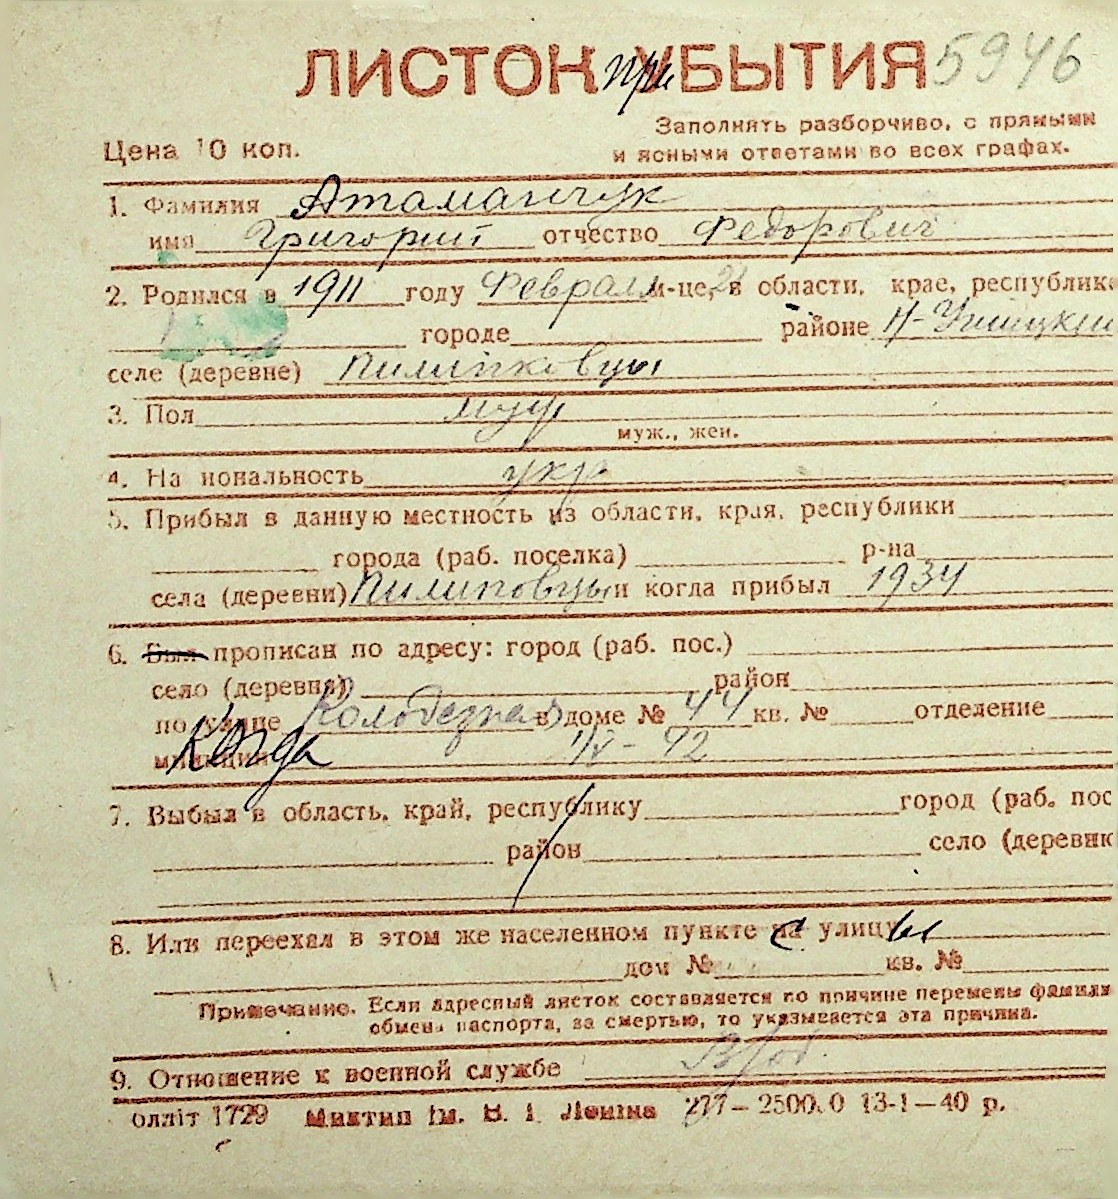 ЛИСТОК при УБЫТИЯ 5946
Заполнять разборчиво, с прямыми
Цена 10 коп. и ясными ответами во всех графах.
1. Фамилия Атаманчук
имя Григорий отчество Федорович
2. Родился в 1911 году Февраля м-це, 21 в области, крае, республике
городе районе Н-Ушицким
селе (деревне) Пилипковцы
3. Пол муж
муж., жен.
4. На иональность укр
5. Прибыл в данную местность из области, края, республики
города (раб. поселка) р-на
села (деревни) Пилиповцы и когда прибыл 1934
6. Был прописан по адресу: город (раб. пос.)
село (деревня) район
по улице Колодезная в доме № 44 кв. № отделение
милиции Когда 1/V - 42
7. Выбыл в область, край, республику город (раб. пос
район село (деревня
8. Или переехал в этом же населенном пункте на с улицу ы
дом № кв. №
Примечание. Если адресный листок составляется по причине перемены фамили
обмена паспорта, за смертью, то указывается эта причина.
9. Отношение к военной службе
оллiт 1729 Миктип iм. В. I. Ленiна 277—2500.0 13-1—40 р.